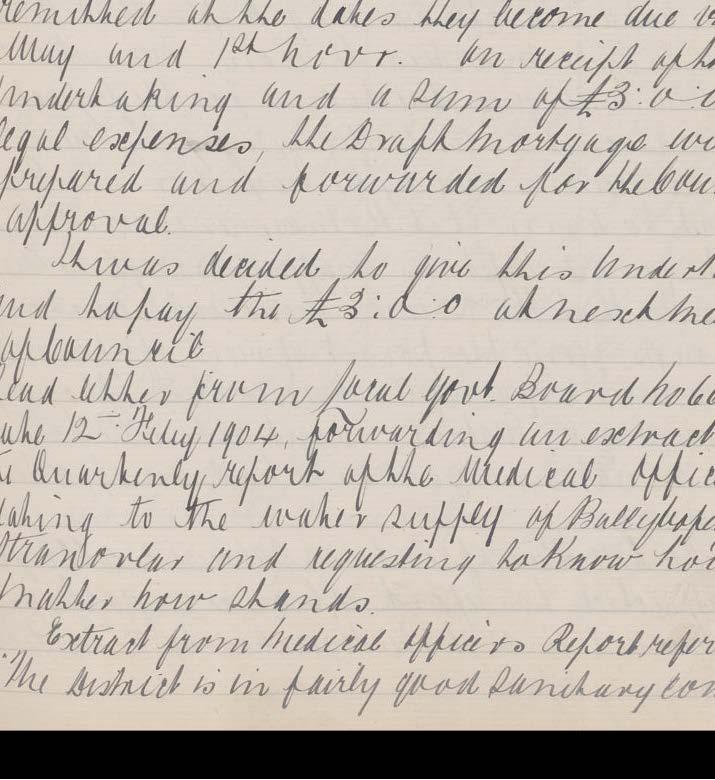 remitted at the dates they become due
May and 1st Novr. On receipt of th
Undertaking and a sum of £3:0:0
legal expenses, the Draft Mortgage wi
prepared and forwarded for the Coun
approval.
It was decided to give this Undert
and to pay the £3:0:0 at next Me
of Council
Read letter from Local Govt. Board No
date 12th Feby 1904, forwarding an extract
Quarterly report of the Medical Offic
lating to the water supply of Ballybofe
Stranorlar and requesting to Know ho
matter now stands.
Extract from Medical Officers Report refer
"The District is in fairly good sanitary con